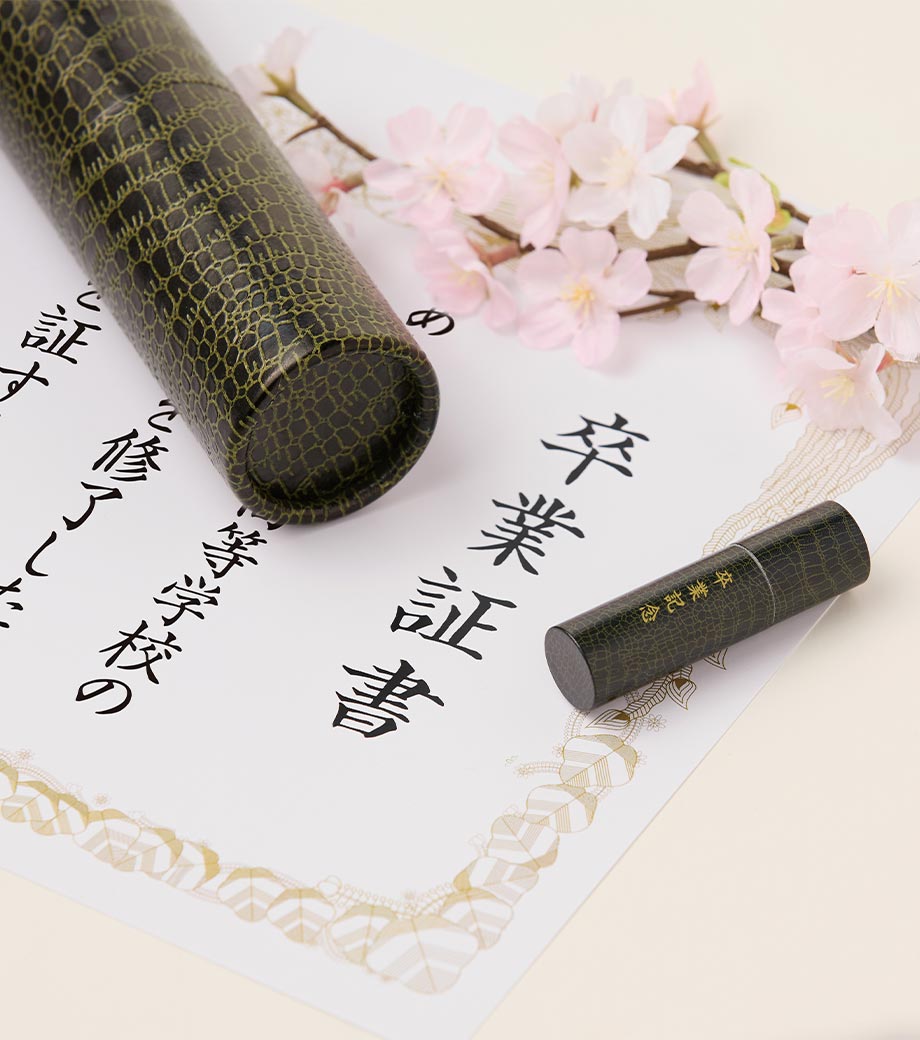 卒業証書
め
等学校の
を修了した
を証す
卒業記念